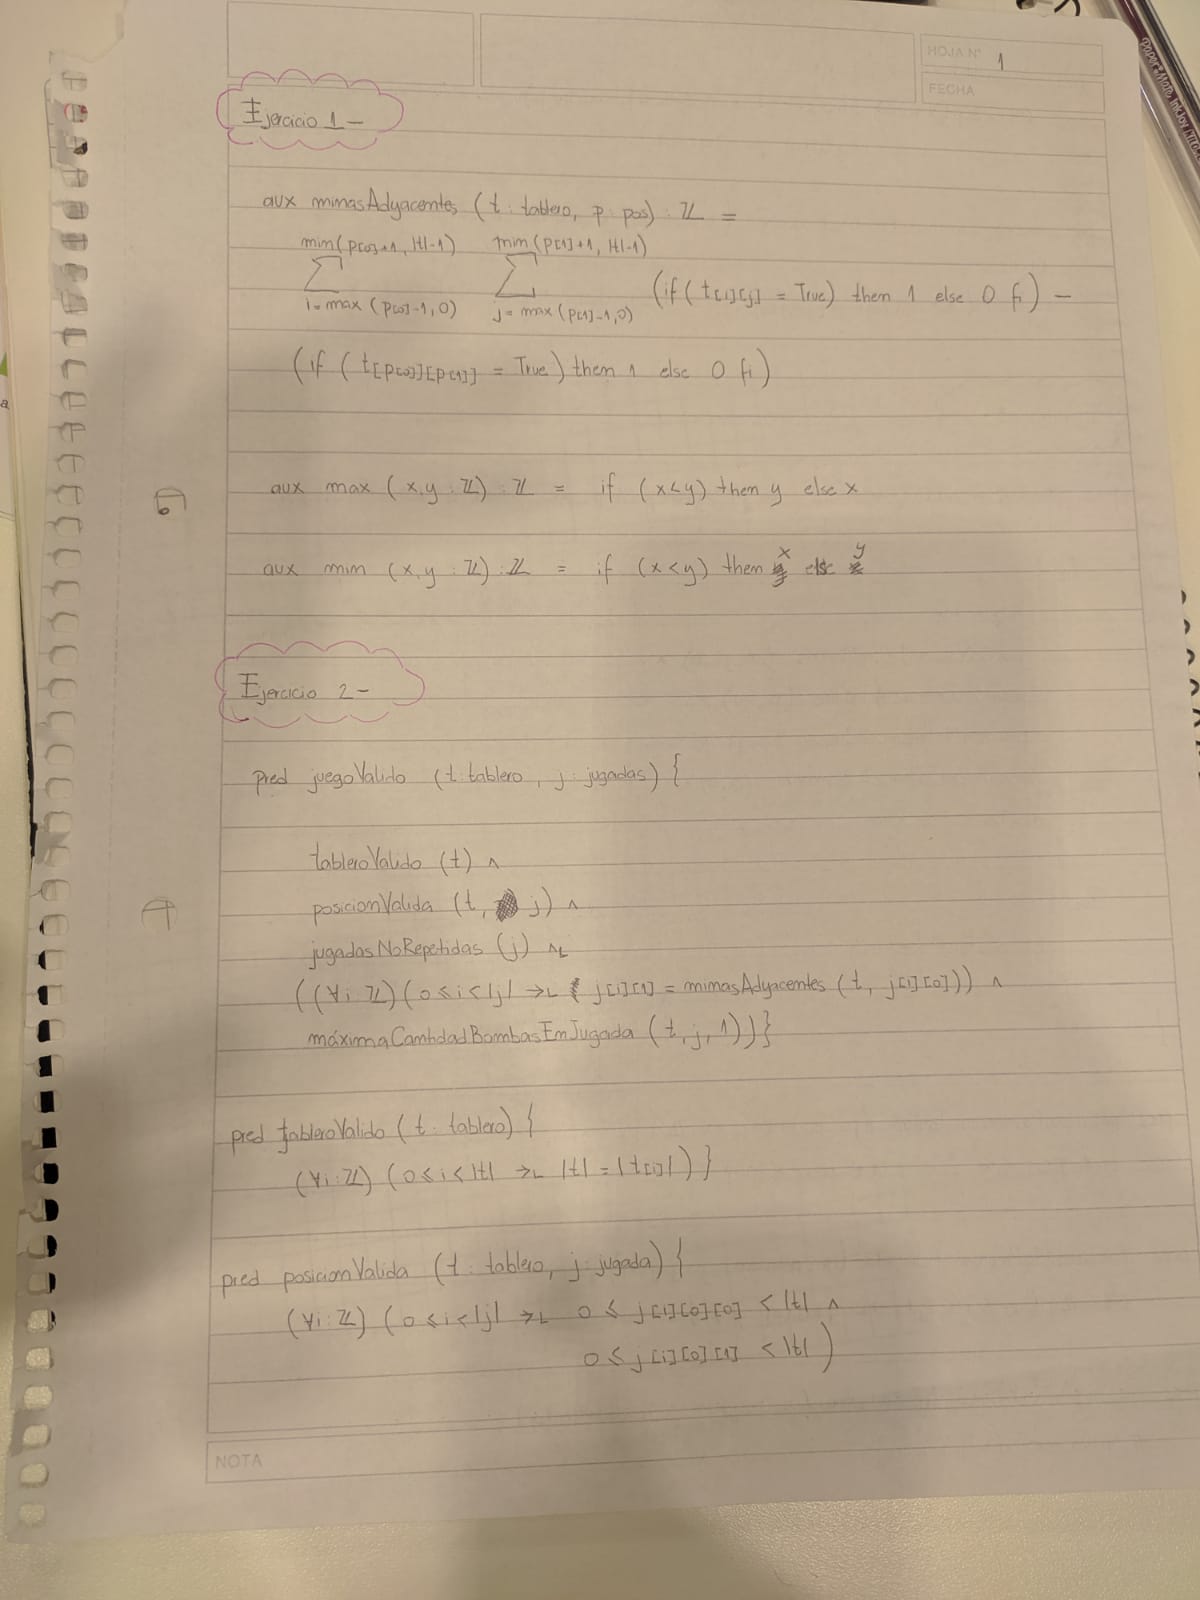 HOJA N° 1
FECHA
Ejercicio 1-
aux minasAdyacentes (t: tablero, p: pos): ℤ =
min(p[0]+1, |t|-1) min(p[1]+1, |t|-1)
∑ ∑ (if (t[i][j] = True) then 1 else 0 fi) -
i=max(p[0]-1,0) j=max(p[1]-1,0)
(if (t[p[0]][p[1]] = True) then 1 else 0 fi)
aux max (x,y: ℤ): ℤ = if (x<y) then y else x
aux min (x,y: ℤ): ℤ = if (x<y) then x else y
Ejercicio 2-
pred juegoValido (t: tablero, j: jugadas) {
tableroValido (t) ∧
posicionValida (t, j) ∧
jugadasNoRepetidas (j) ∧L
((∀i: ℤ)(0≤i<|j| →L j[i][1] = minasAdyacentes (t, j[i][0])) ∧
máximaCantidadBombasEnJugada (t,j,1))}
pred tableroValido (t: tablero) {
(∀i: ℤ) (0≤i<|t| →L |t| = |t[i]|) }
pred posicionValida (t: tablero, j: jugada) {
(∀i: ℤ) (0≤i<|j| →L 0 ≤ j[i][0][0] < |t| ∧
0 ≤ j[i][0][1] < |t| )
NOTA
PaperMate InkJoy